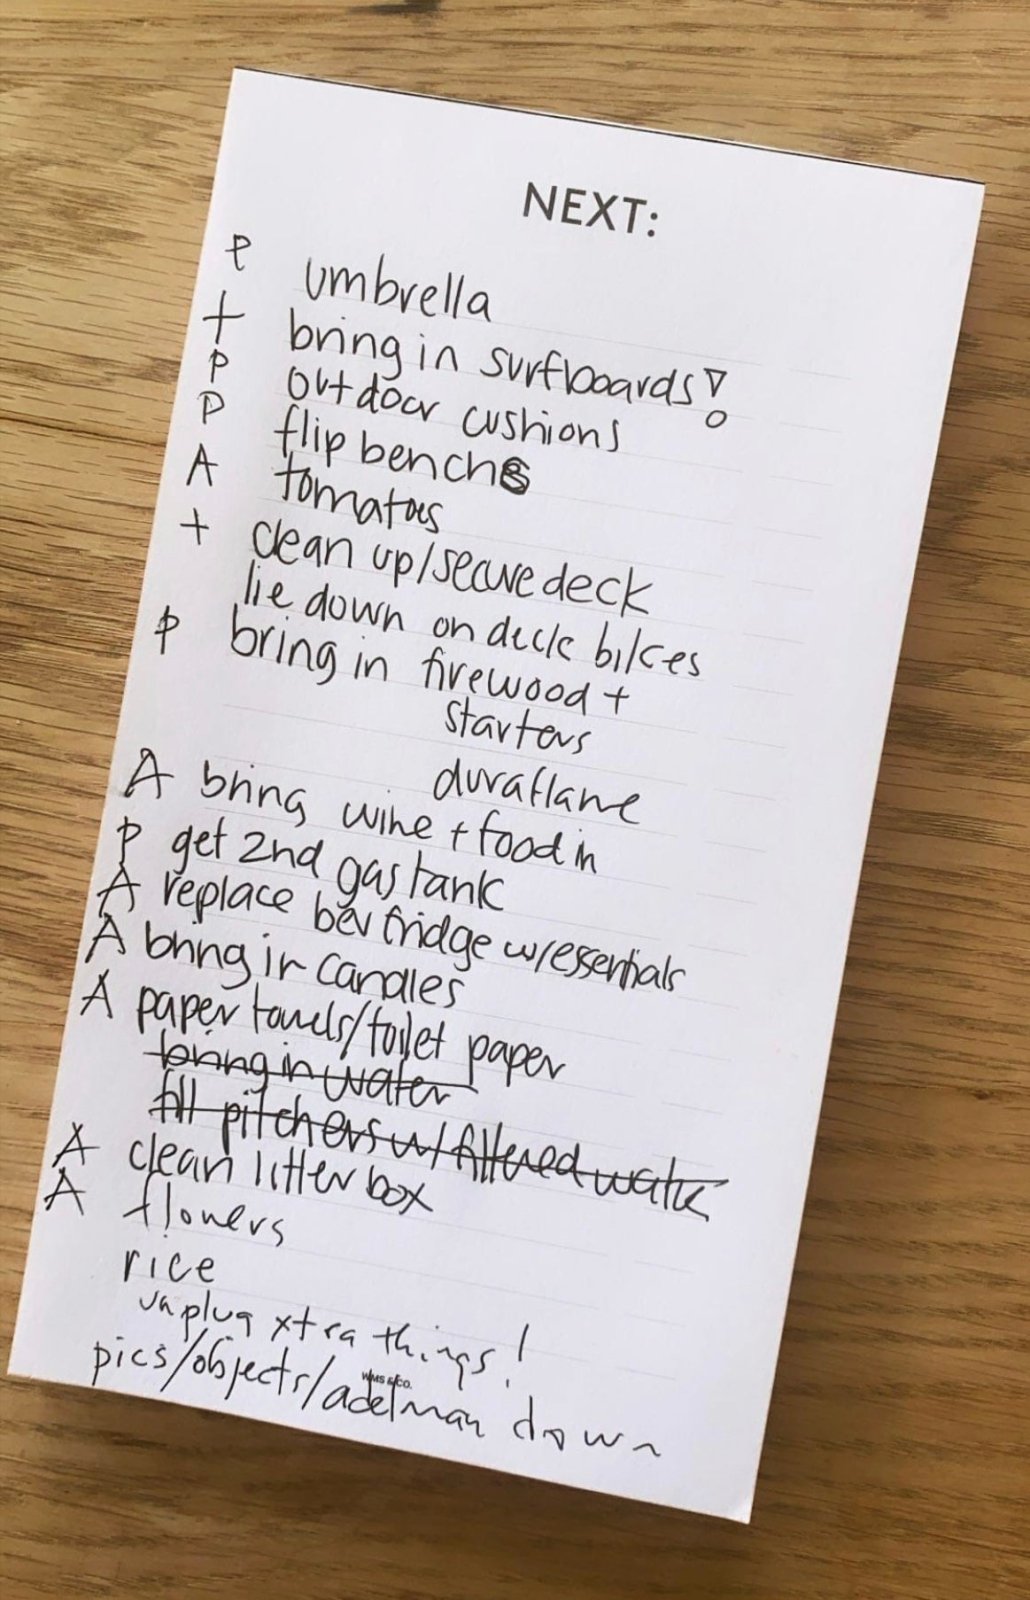 NEXT:
P umbrella
+ bring in surfboards!
P outdoor cushions
P flip benches
A tomatoes
+ clean up/secure deck
lie down on deck bikes
P bring in firewood +
starters
duraflame
A bring wine + food in
P get 2nd gas tank
A replace bev fridge w/essentials
A bring in candles
A paper towels/toilet paper
bring in water
fill pitchers w/filtered water
A clean litter box
A flowers
rice
unplug xtra things!
pics/objects/adelman down
WMS & CO.